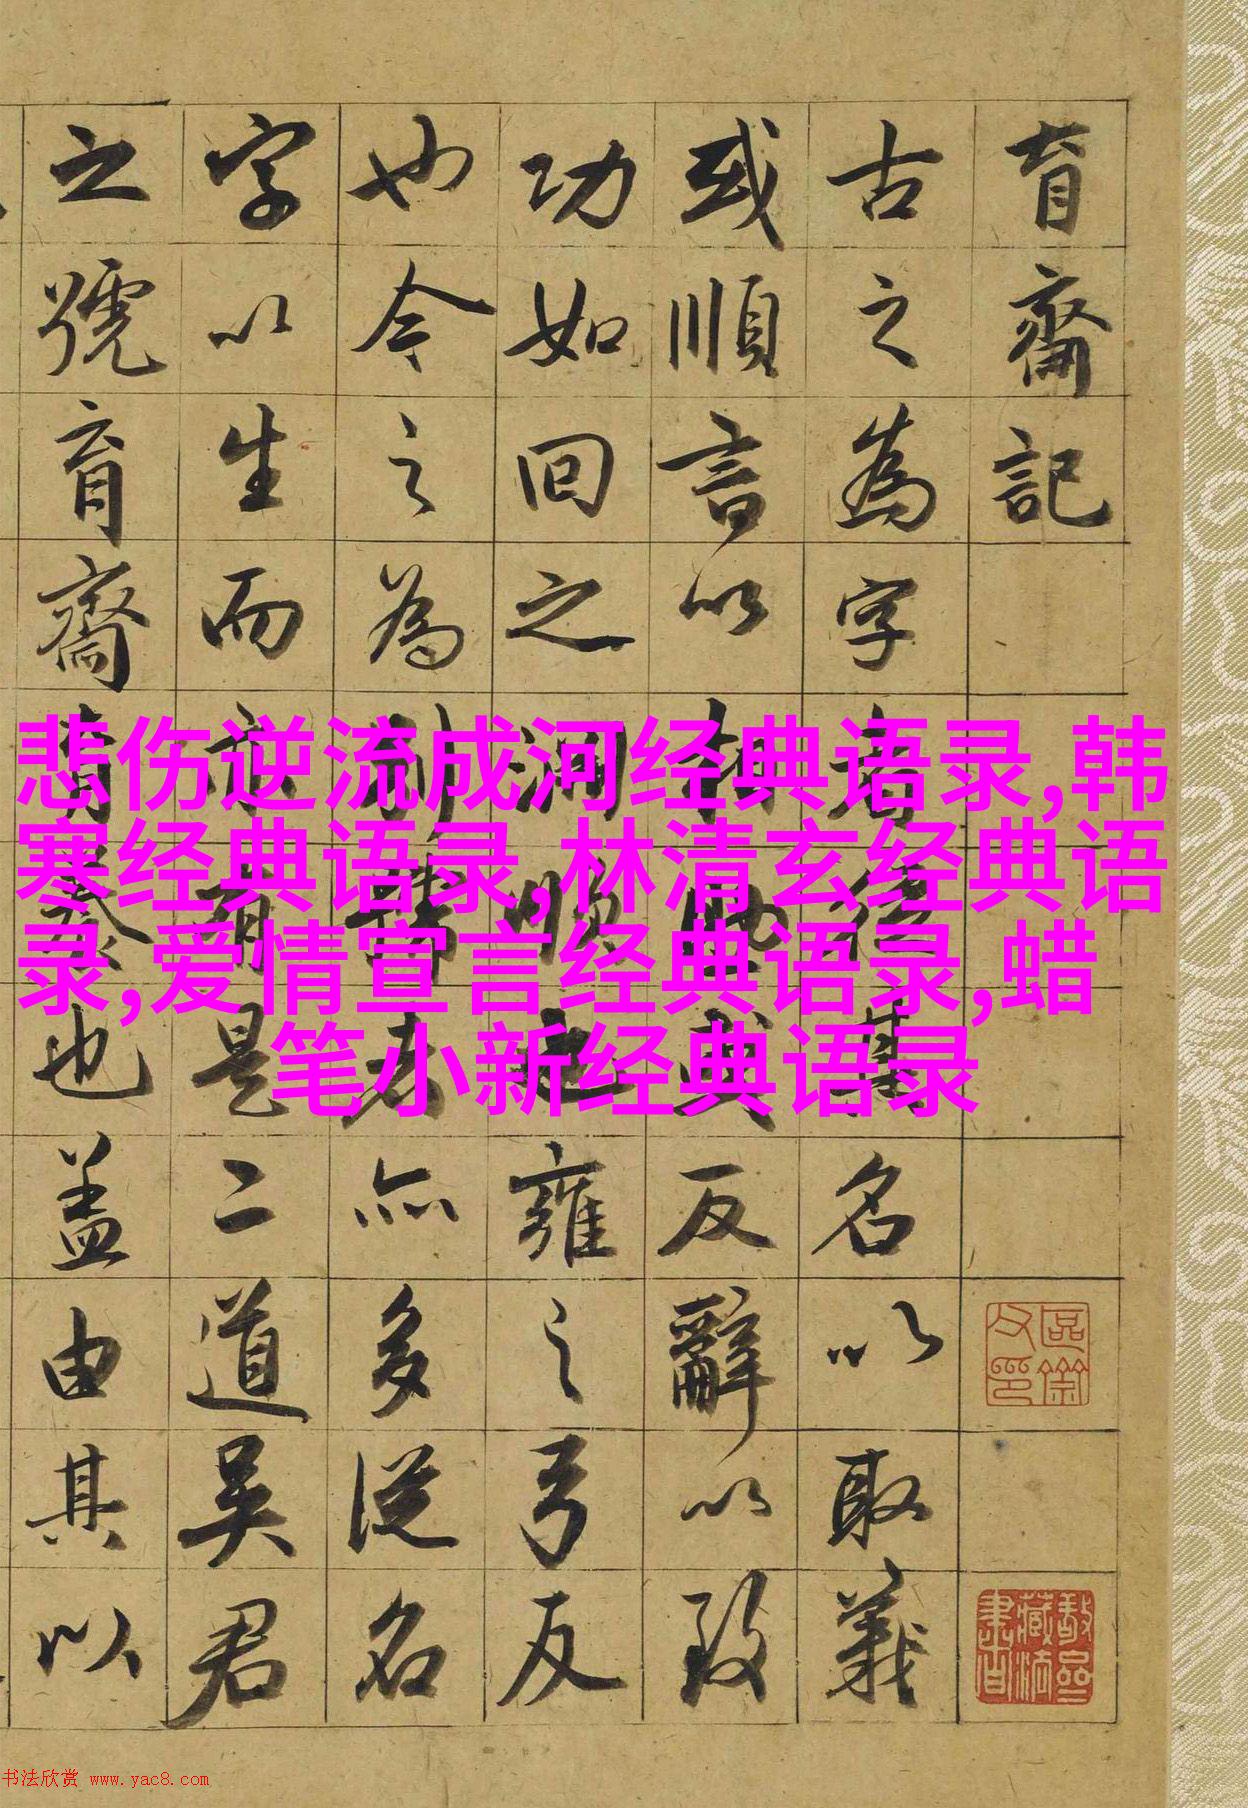 育齋記
古之為字者其名以取義
或順言以或反辭以致
功如回之淵雍之弓反
也今之為別號者亦多從名
字以生而有是二道吳君
之號育齋也蓋由其以
悲伤逆流成河经典语录,韩
寒经典语录,林清玄经典语
录,爱情宣言经典语录,蜡
笔小新经典语录
书法欣赏 www.yac8.com